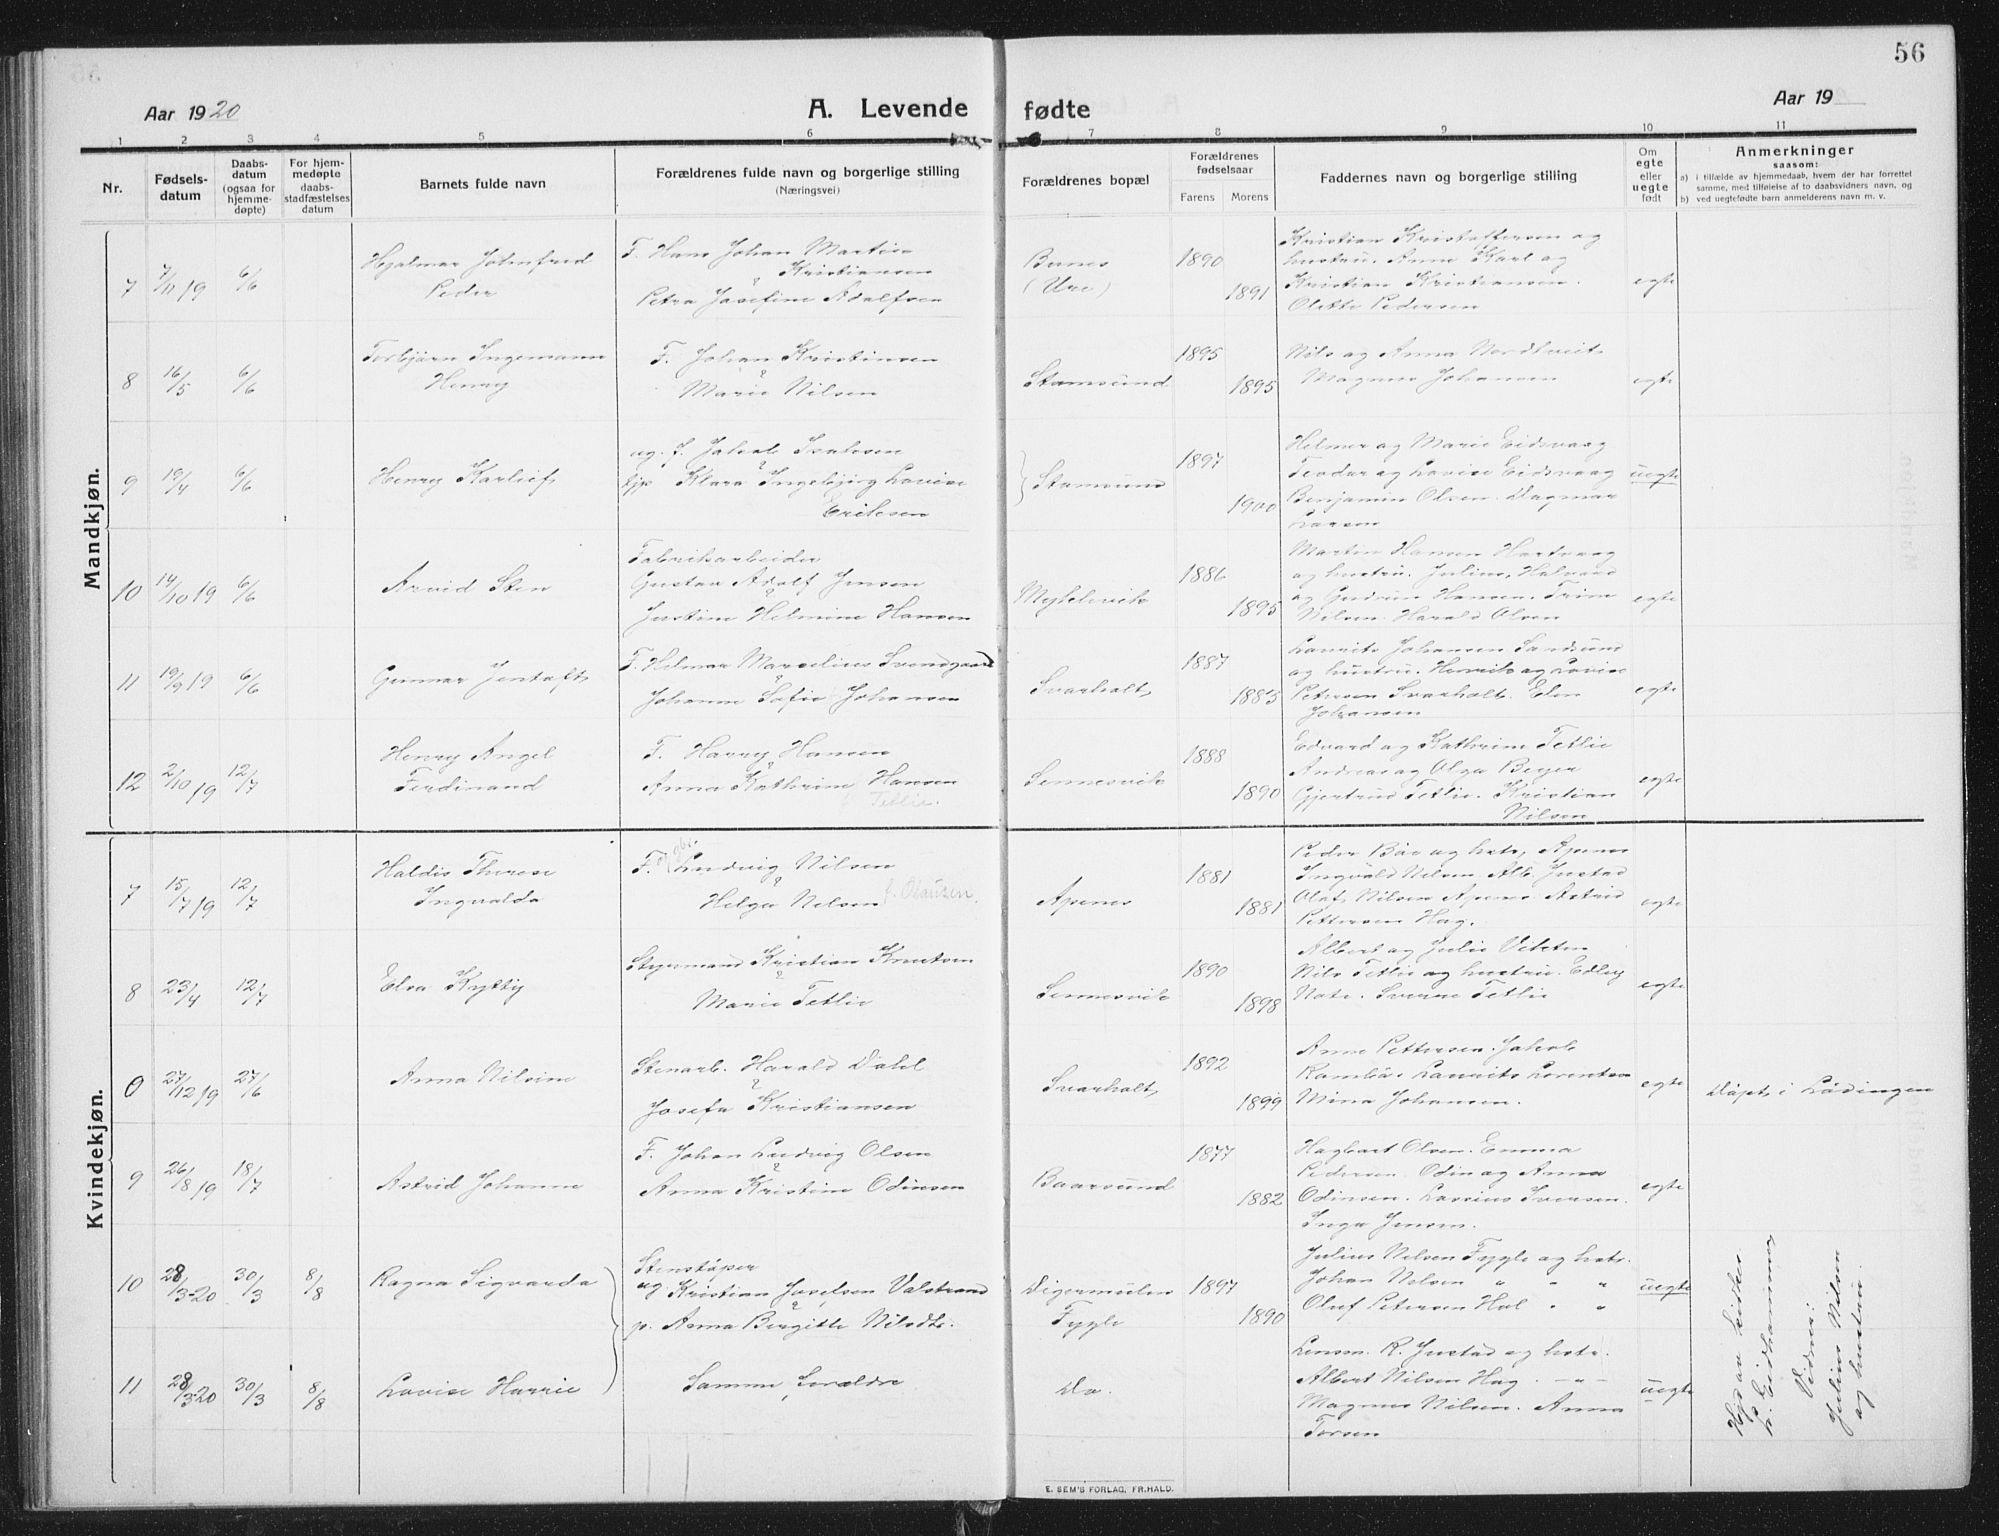 56
Aar 1920
A. Levende fødte
Aar 19
1 2 3 4 5 6 7 8 9 10 11
Nr.
Fødsels-
datum
Daabs-
datum
(ogsaa for
hjemme-
døpte)
For hjem-
medøpte
daabs-
stadfæstelses
datum
Barnets fulde navn
Forældrenes fulde navn og borgerlige stilling
(Næringsvei)
Forældrenes bopæl
Forældrenes
fødselsaar
Farens Morens
Faddernes navn og borgerlige stilling
Om
egte
eller
uegte
født
Anmerkninger
saasom:
a) i tilfælde av hjemmedaab, hvem der har forrettet
samme, med tilføielse af to daabsvidners navn, og
b) ved uegtefødte barn anmelderens navn m. v.
Mandkjøn.
7 7/11 19 6/6
Hjalmar Johnfred
Peder
F. Hans Johan Martin
Kristiansen
Petra Josefine Adolfsen
(Ure)
1890
1891
Kristian Kristoffersen og
hustru. Anne Karl og
Kristian Kristiansen.
Olette Pedersen
egte
8 16/5 6/6
Torbjørn Ingemann
Henry
F. Johan Kristinsen
Marie Nilsen
Stamsund
1895
1895
Nils og Anna Nordtveit
Magnus Johansen
egte
9 19/4 6/6
Henry Karleif
ug. f. Jakob Isaksen
Klara Ingebjørg Lovise
Eriksen
Stamsund
1897
1900
Helmer og Marie Eidsvaag
Teodor og Lovise Eidsvaag
Benjamin Olsen. Dagmar
Larsen
uegte
10 14/10 19 6/6
Arvid Sten
Fabriksarbeider
Gustav Adolf Jensen
Justine Helmine Hansen
Myklevik
1886
1895
Martin Hansen Hartvaag
og hustru. Julius, Halvard
og Gudrun Hansen. Trine
Nilsen. Harald Olsen
egte
11 19/9 19 6/6
Gunnar Jentoft
F. Hilmar Marselius Svendgaard
Johanne Sofie Johansen
Svarholt
1887
1883
Laurits Johansen Sandsund
og hustru. Henrik og Lovise
Petersen Svarholt. Elen
Johansen
egte
12 2/10 19 12/7
Henry Angel
Ferdinand
F. Harry Hansen
Anna Kathrine Hansen
f. Tetlie.
Sennesvik
1888
1890
Edvard og Kathrine Tetlie
Andreas og Olga Beyer
Gjertrud Tetlie. Kristian
Nilsen
egte
Kvindekjøn.
7 15/7 19 12/7
Haldis Therese
Ingvalda
F. og gbr. Ludvig Nilsen
Helga Nilsen f. Olausen.
Apenes
1881
1881
Peder Bøe og hstr, Apenes
Ingvald Nilsen. Alb. Justad
Olaf Nilsen Apenes. Astrid
Pettersen Hag.
egte
8 23/4 12/7
Elva Kytty
Styrmand Kristian Knutsen
Marie Tetlie
Sennesvik
1890
1898
Albert og Julie Vikten
Nils Tetlie og hustru. Edley
Sverre Tetlie
egte
0 27/12 19 27/6
Anna Nilvine
Stenarb. Harald Dahl
Josefa Kristiansen
Svarholt
1892
1899
Anne Pettersen. Jakob
Rambö. Laurits Lorentsen
Mina Johansen.
egte
Døpt i Lödingen
9 26/8 19 18/7
Astrid Johanne
F. Johan Ludvig Olsen
Anna Kristine Odinsen
Baarsund
1877
1882
Hagbart Olsen. Emma
Pedersen. Odin og Anna
Odinsen. Lassius Iversen.
Inga Jensen.
egte
10 28/3-20 30/3 8/8
Ragna Sigvarda
Stenstøper
ug Kristian Joselsen Valstrand
p. Anna Bergitte Nilsdtr.
Digermulen
Fygle
1897
1890
Julius Nilsen Fygle og hstr.
Johan Nilsen " " "
Oluf Petersen Hol " "
uegte
11 28/3-20 30/3 8/8
Lovise Harrie
Samme forældre
Do.
Lensm. R. Justad og hstr.
Albert Nilsen Hag. -"-
Magnus Nilsen. Anna
Torsen
uegte
Hjd. av lister
L. Eidhammer
Vidner:
Julius Nilsen
og hustru.
E. SEM'S FORLAG, FR.HALD.